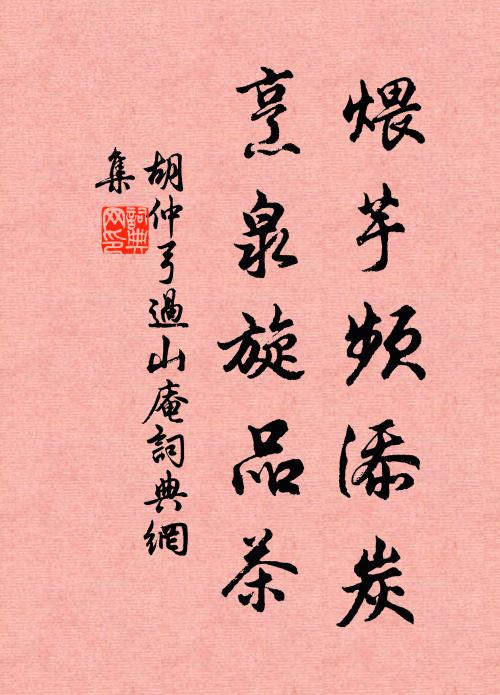 煨芋頻添炭
烹泉旋品茶
胡仲弓過山庵詞典網
集
詞典
网印